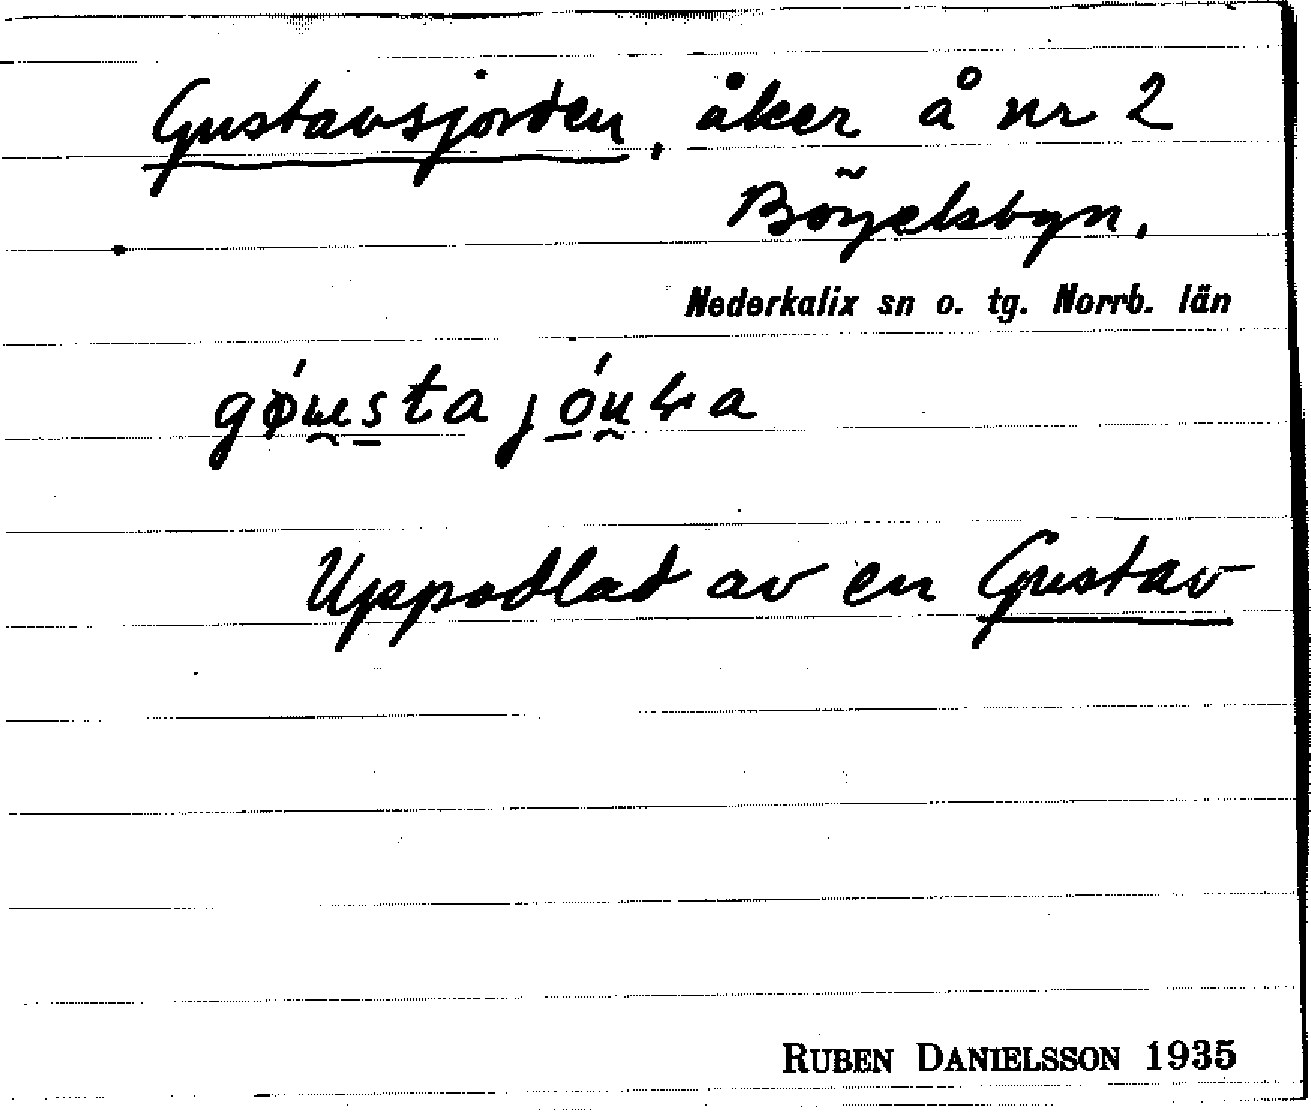 Gustavsjorden, åker å nr 2
Böÿelsbyn.
Nederkalix sn o. tg. Norrb. län
Uppodlad av en Gustav
RUBEN DANIELSSON 1935